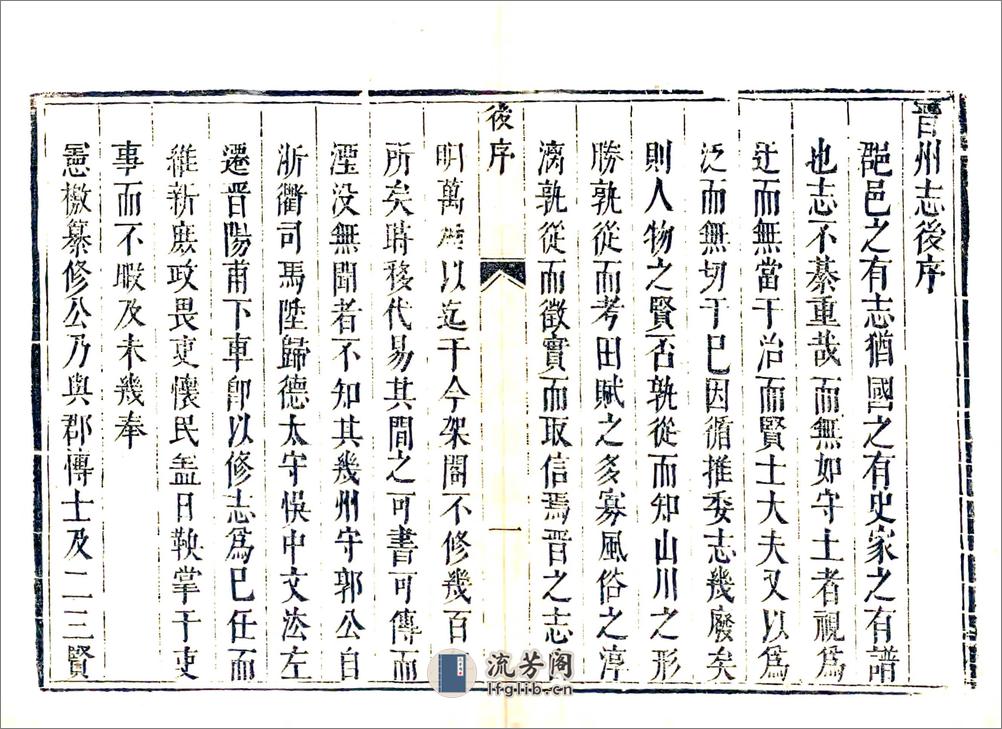 晉州志後序
郡邑之有志猶國之有史家之有譜
也志不綦重哉而無如守土者視爲
迂而無當于治而賢士大夫又以爲
泛而無切于巳因循推委志幾廢矣
則人物之賢否孰從而知山川之形
勝孰從而考田賦之多寡風俗之淳
漓孰從而徵實而取信焉晉之志自
後序
一
明萬曆以迄于今架閣不修幾百
所矣時移代易其間之可書可傳而
湮没無聞者不知其幾州守郭公自
浙衢司馬陞歸德太守悞中文法左
遷晉陽甫下車卽以修志爲巳任而
維新庶政畏吏懷民盖日鞅掌于吏
事而不暇及未幾奉
憲檄纂修公乃與郡愽士及二三賢
流芳阁
lfglib.cn